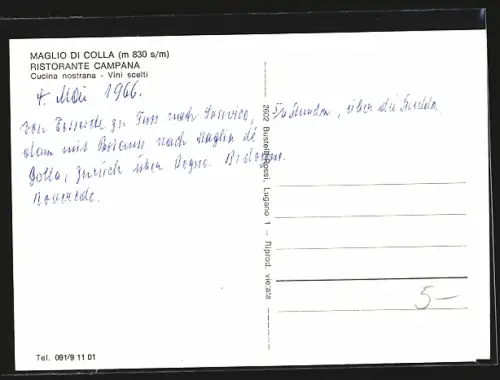 MAGLIO DI COLLA (m 830 s/m)
RISTORANTE CAMPANA
Cucina nostrana - Vini scelti
4. Mai 1966.
von Tesserete zu Fuss nach Sonvico, 5/4 Stunden, über die
dann mit Postauto nach Maglio di
Colla, zurück über Bogno.
Roveredo.
2602 Bustelli-Rossi, Lugano 1 - Riprod. vietata
5-
Tel. 091/9 11 01